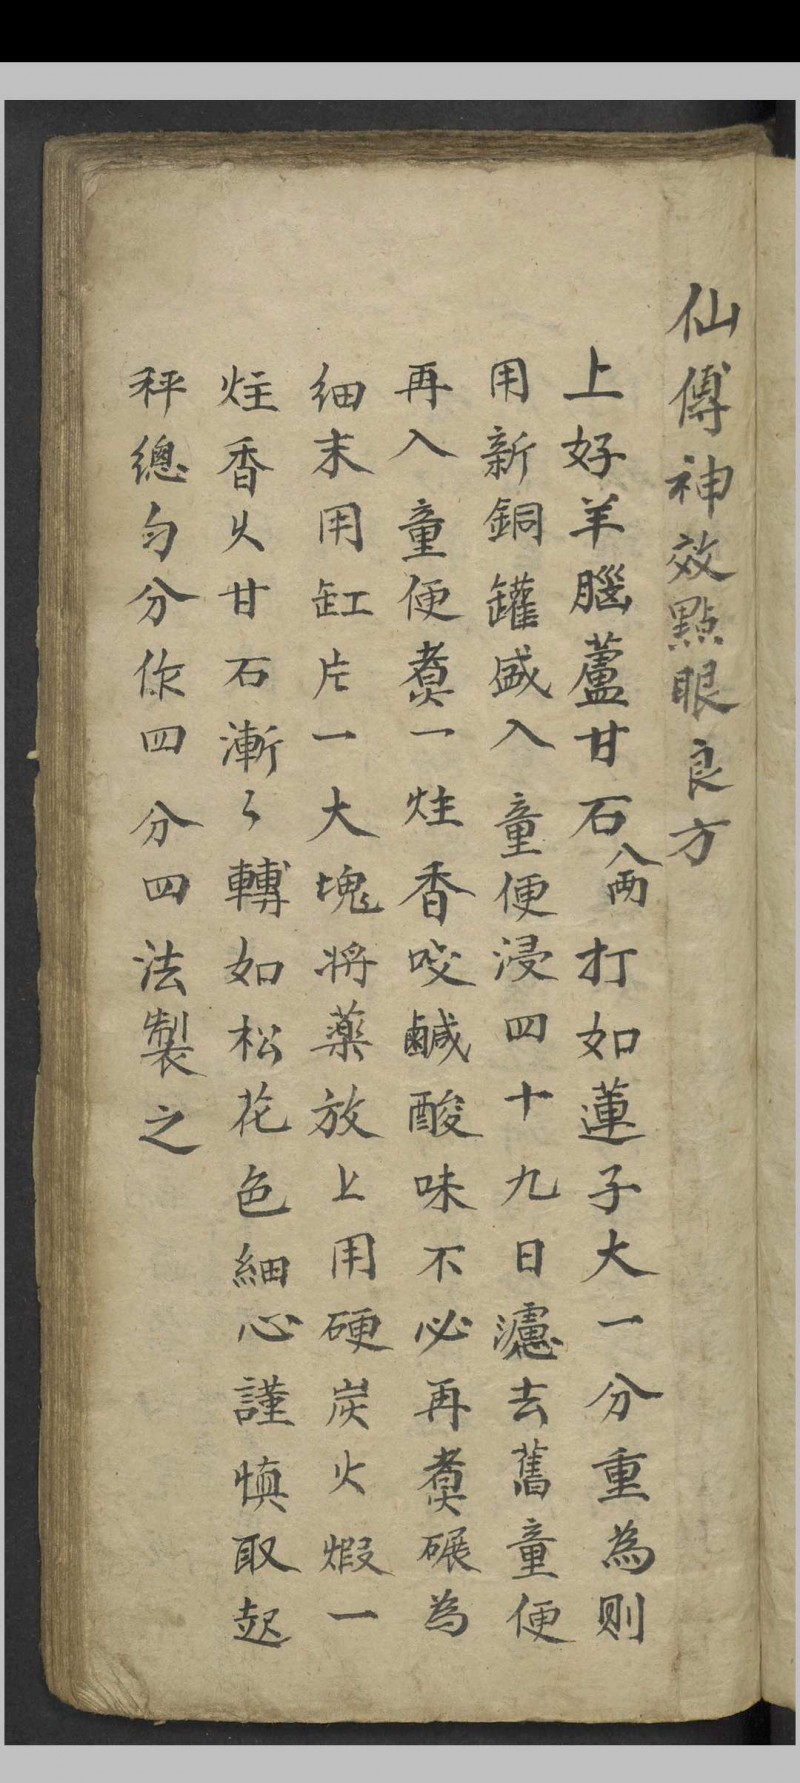 仙傳神效點眼良方
上好羊腦蘆甘石八兩打如蓮子大一分重為則
用新銅罐盛入童便浸四十九日濾去舊童便
再入童便煑一炷香咬鹹酸味不必再煑碾為
細末用缸片一大塊將藥放上用硬炭火煆一
炷香久甘石漸〻轉如松花色細心謹慎取起
秤總勻分作四分四法製之